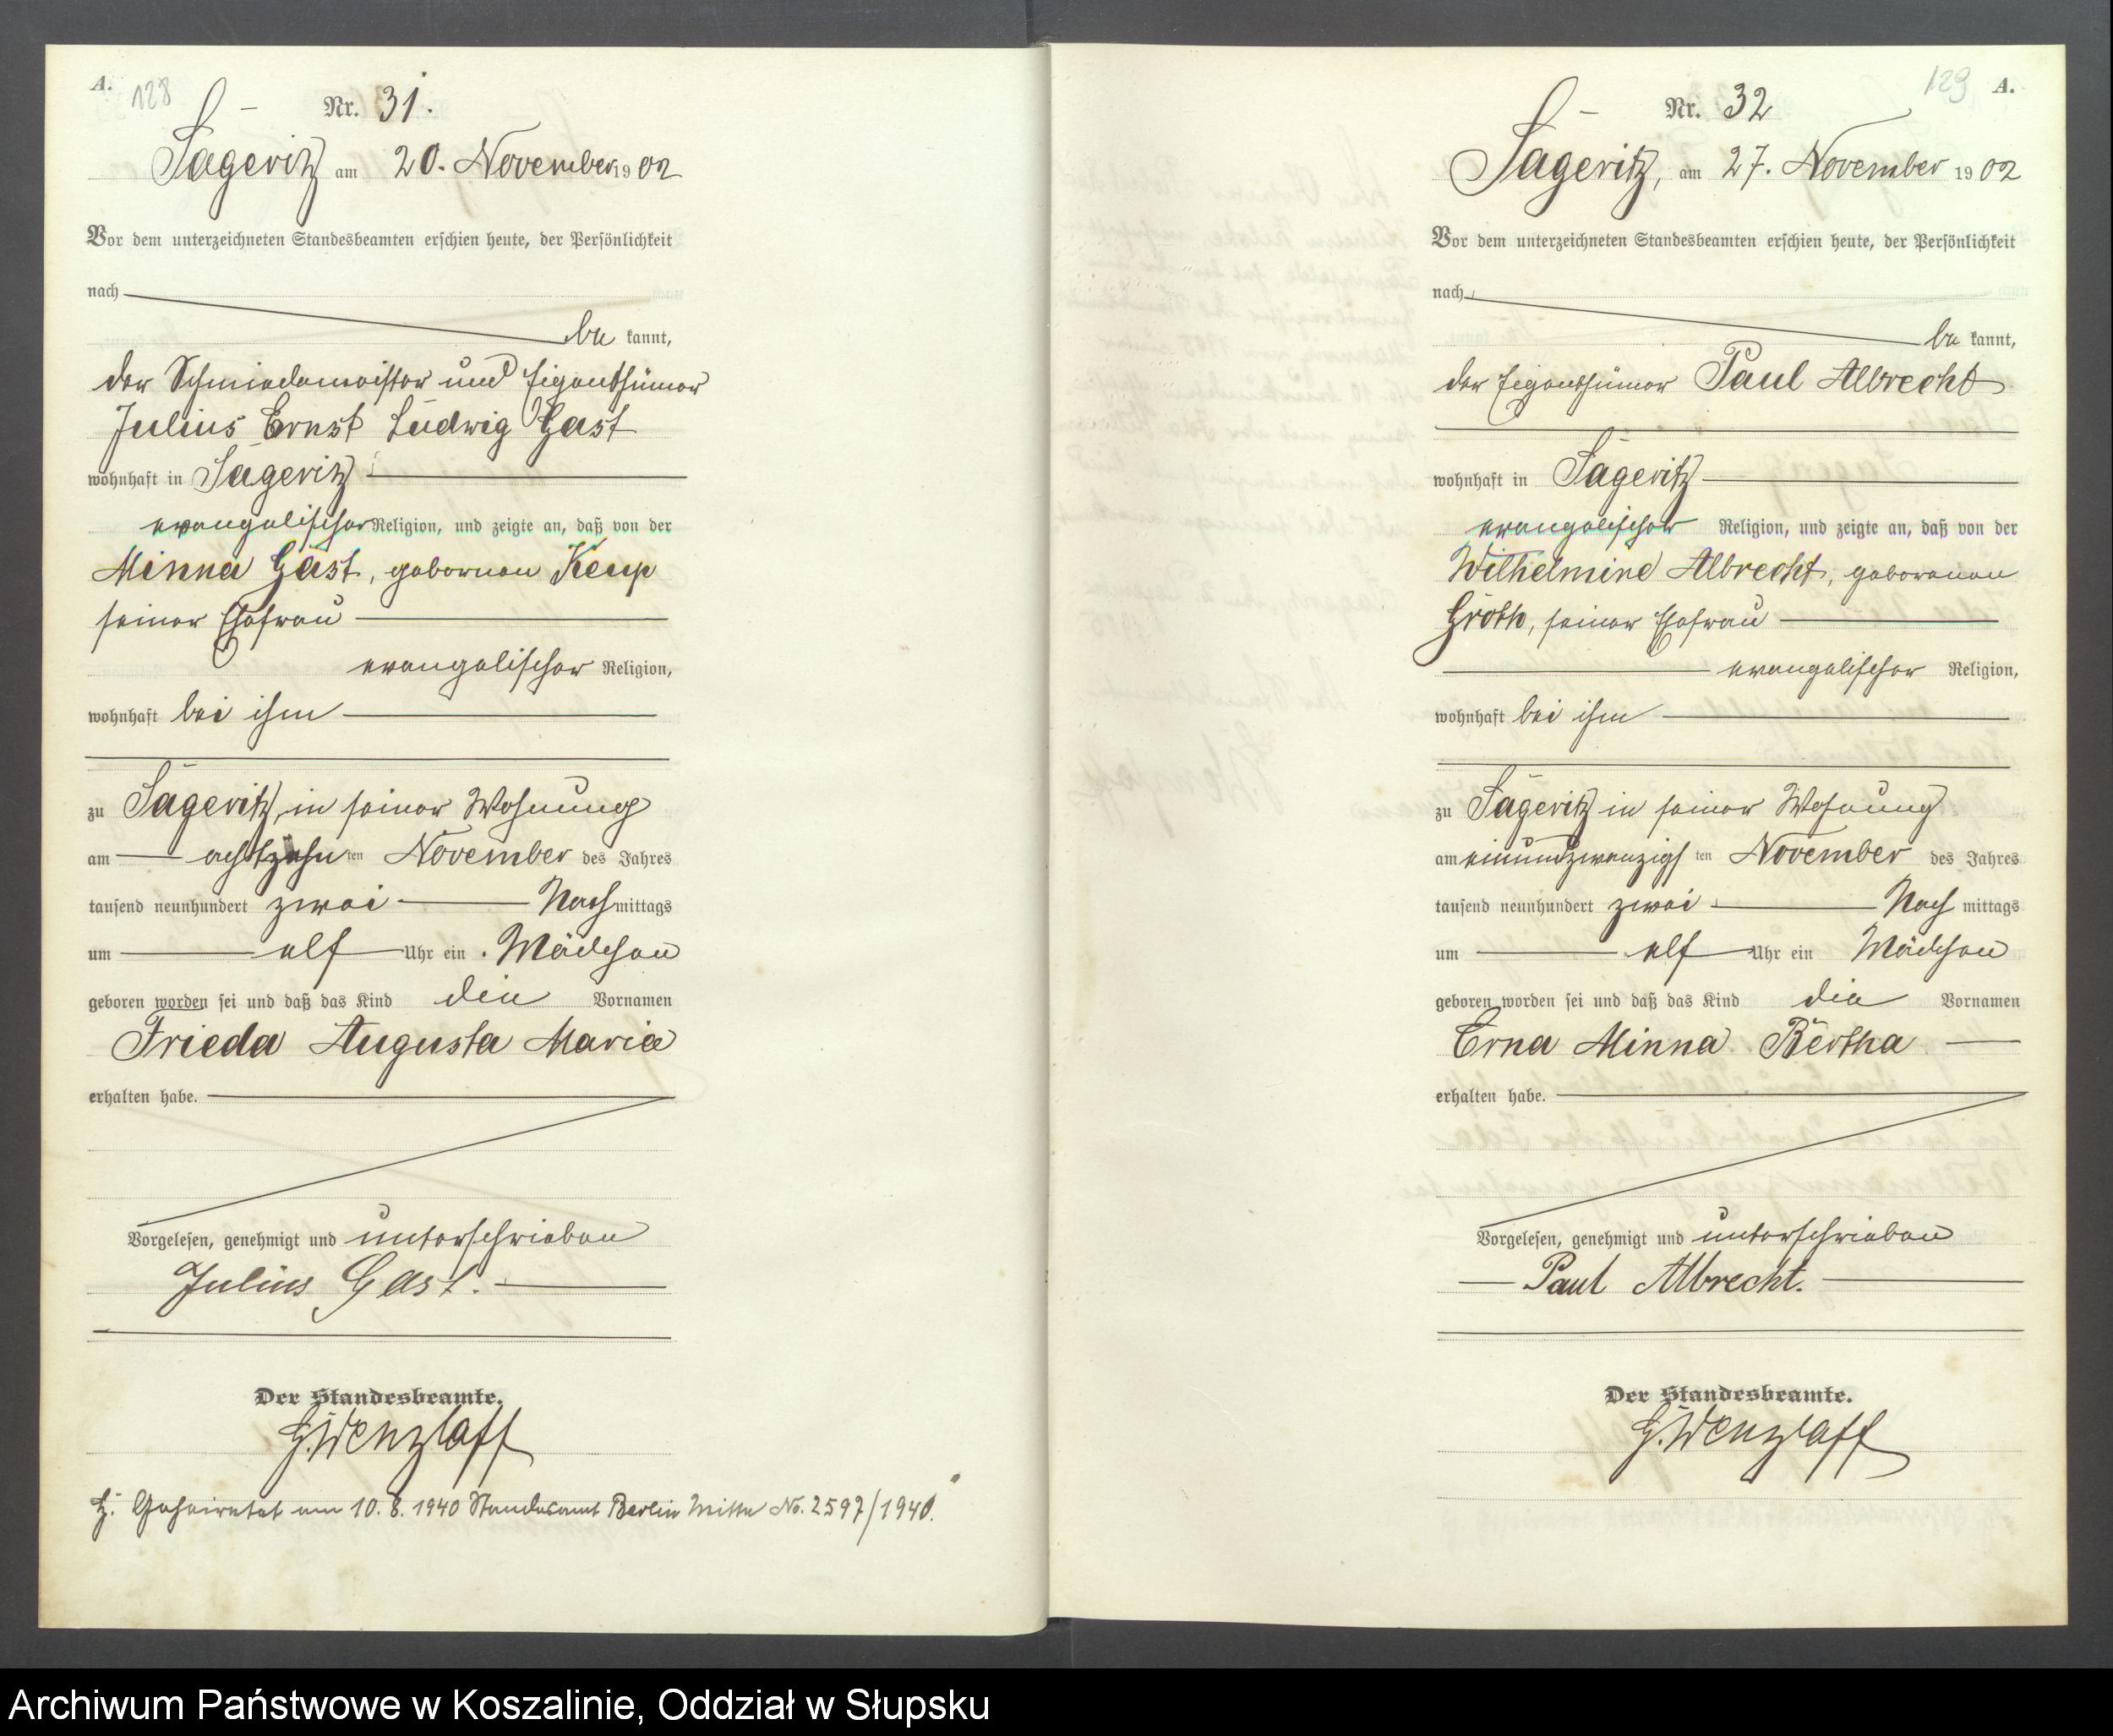 A.
128
Nr. 31.
Sageritz am 20. November 1902
Vor dem unterzeichneten Standesbeamten erschien heute, der Persönlichkeit
nach
be kannt,
der Schmiedemeister und Eigenthümer
Julius Ernst Ludwig Gast
wohnhaft in Sageritz
evangelischer Religion, und zeigte an, daß von der
Minna Gast, geborenen
seiner Ehefrau
evangelischer Religion,
wohnhaft bei ihm
zu Sageritz, in seiner Wohnung
am achtzehn ten November des Jahres
tausend neunhundert zwei Nach mittags
um elf Uhr ein Mädchen
geboren worden sei und daß das Kind die Vornamen
Frieda Augusta Marie
erhalten habe.
Vorgelesen, genehmigt und unterschrieben
Julius Gast.
Der Standesbeamte.
G. Wenzlaff
Geheiratet am 10.8.1940 Standesamt Berlin Mitte No. 2597/1940.
129
A.
Nr. 32
Sageritz, am 27. November 1902
Vor dem unterzeichneten Standesbeamten erschien heute, der Persönlichkeit
nach
be kannt,
der Eigenthümer Paul Albrecht
wohnhaft in Sageritz
evangelischer Religion, und zeigte an, daß von der
Wilhelmine Albrecht, geborenen
Groth, seiner Ehefrau
evangelischer Religion,
wohnhaft bei ihm
zu Sageritz in seiner Wohnung
am einundzwanzigs ten November des Jahres
tausend neunhundert zwei Nach mittags
um elf Uhr ein Mädchen
geboren worden sei und daß das Kind die Vornamen
Erna Minna Bertha
erhalten habe.
Vorgelesen, genehmigt und unterschrieben
Paul Albrecht.
Der Standesbeamte.
G. Wenzlaff
Archiwum Państwowe w Koszalinie, Oddział w Słupsku